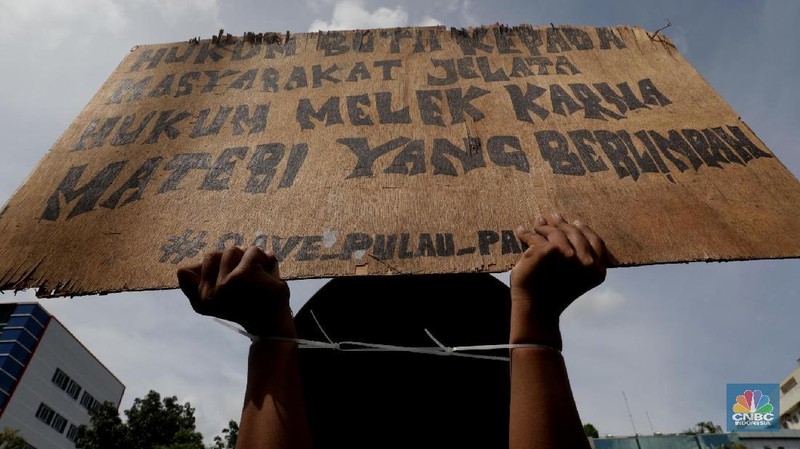 HUKUM BUTA KEPADA
MASYARAKAT JELATA
HUKUM MELEK KARNA
MATERI YANG BERLIMBAH
#SAVE_PULAU_PA
CNBC
INDONESIA